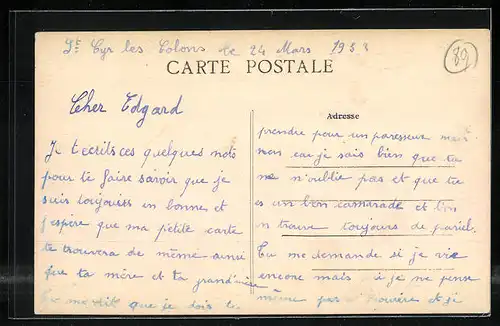 St Cyr les Colons le 24 Mars 193
89
CARTE POSTALE
Cher Edgard
Adresse
Je t'ecrits ces quelques mots
pour te faire savoir que je
suis toujours en bonne et
j'espère que ma petite carte
te trouvera de même ainsi
que ta mère et ta grand'mère
Tu me dit que je dois te
prendre pour un paresseux mais
non car je sais bien que tu
ne n'oublie pas et que tu
es un bon camarade et l'on
n trouve toujours de pareil.
Tu me demande si je vie
encore mais si je ne pense
même pas mourire et si